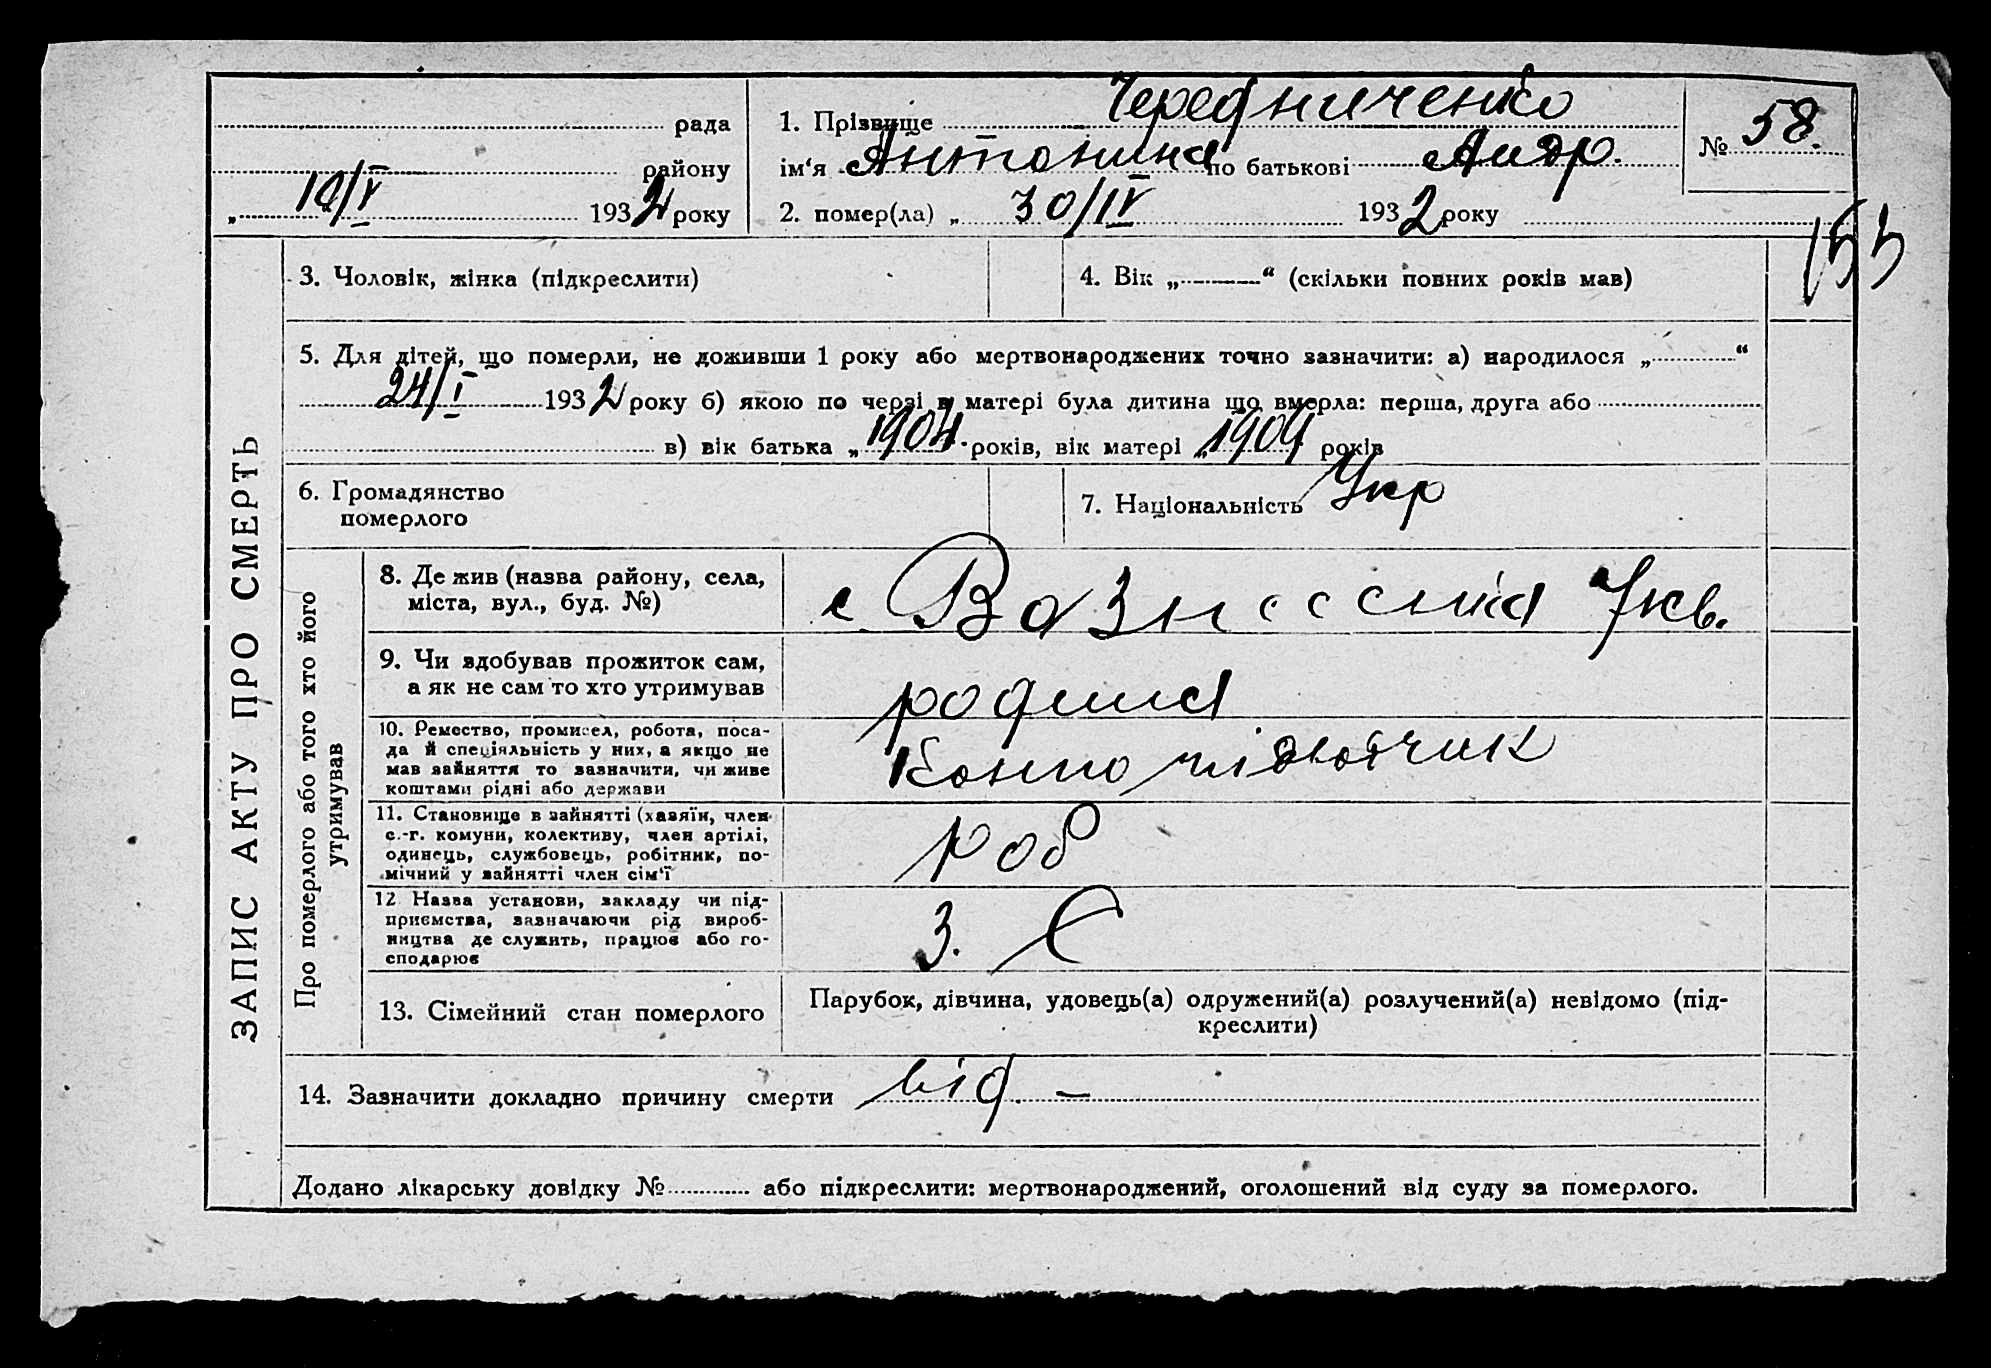 Чередниченко
рада 1. Прізвище № 58.
району ім'я Антонина по батькові Андр.
„ /V 1932 року 2. помер(ла) „ 30/IV 1932 року
153
ЗАПИС АКТУ ПРО СМЕРТЬ
3. Чоловік, жінка (підкреслити) 4. Вік „ “ (скільки повних років мав)
5. Для дітей, що померли, не доживши 1 року або мертвонароджених точно зазначити: а) народилося „ “
24/I 1932 року б) якою по черзі в матері була дитина що вмерла: перша, друга або
в) вік батька „ 1904. років, вік матері „ 1904 років
6. Громадянство
померлого
7. Національність Укр
Про померлого або того хто його
утримував
8. Де жив (назва району, села,
міста, вул., буд. №)
с Вознесенка
9. Чи здобував прожиток сам,
а як не сам то хто утримував
родина
10. Ремество, промисел, робота, поса-
да й спеціяльність у них, а якщо не
мав зайняття то зазначити, чи живе
коштами рідні або держави
11. Становище в зайнятті (хазяїн, член
с.-г. комуни, колективу, член артілі,
одинець, службовець, робітник, по-
мічний у зайнятті член сім'ї
роб
12 Назва установи, закладу чи під-
приємства, зазначаючи рід вироб-
ництва де служить, працює або го-
сподарює
З. Є
13. Сімейний стан померлого
Парубок, дівчина, удовець(а) одружений(а) розлучений(а) невідомо (під-
креслити)
14. Зазначити докладно причину смерти від. —
Додано лікарську довідку № або підкреслити: мертвонароджений, оголошений від суду за померлого.